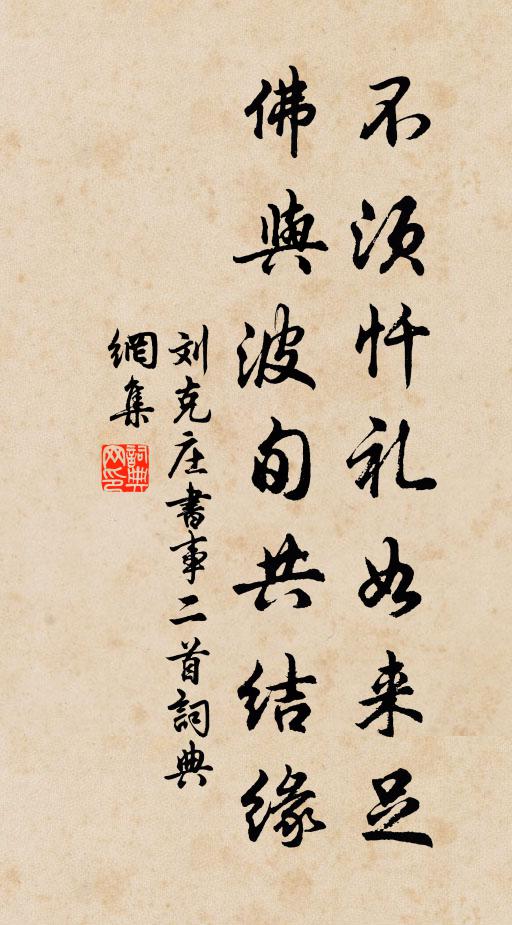 不须忏礼如来足
佛與波旬共结缘
刘克庄書事二首詞典
網集
詞典
网印